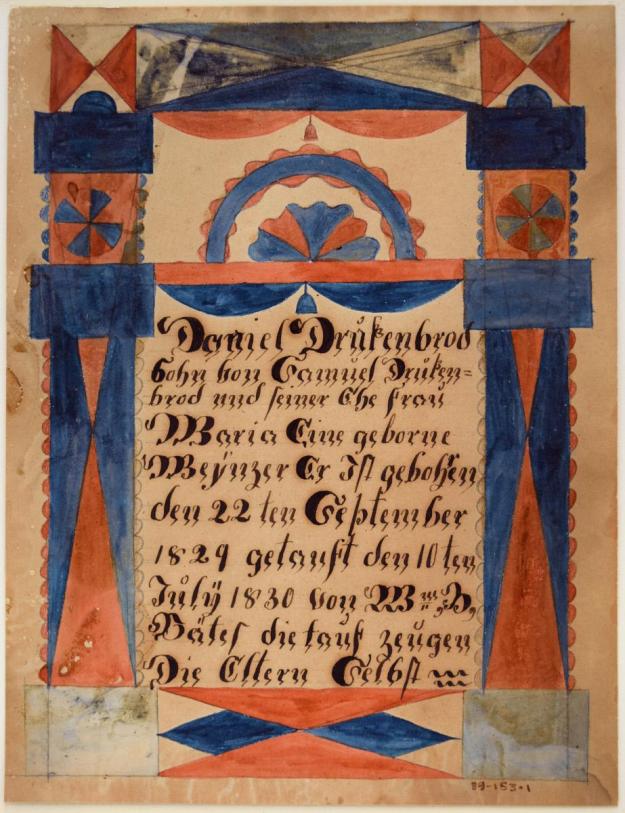 Daniel Drukenbrod
Sohn von Samuel Druken=
brod und seiner Ehe frau
Maria Eine geborne
Weÿnzer Er Ist gebohren
den 22 ten September
1829 getauft den 10 ten
Julÿ 1830 von Wm B,
Bätes die tauf zeugen
Die Eltern Selbst
89-153.1